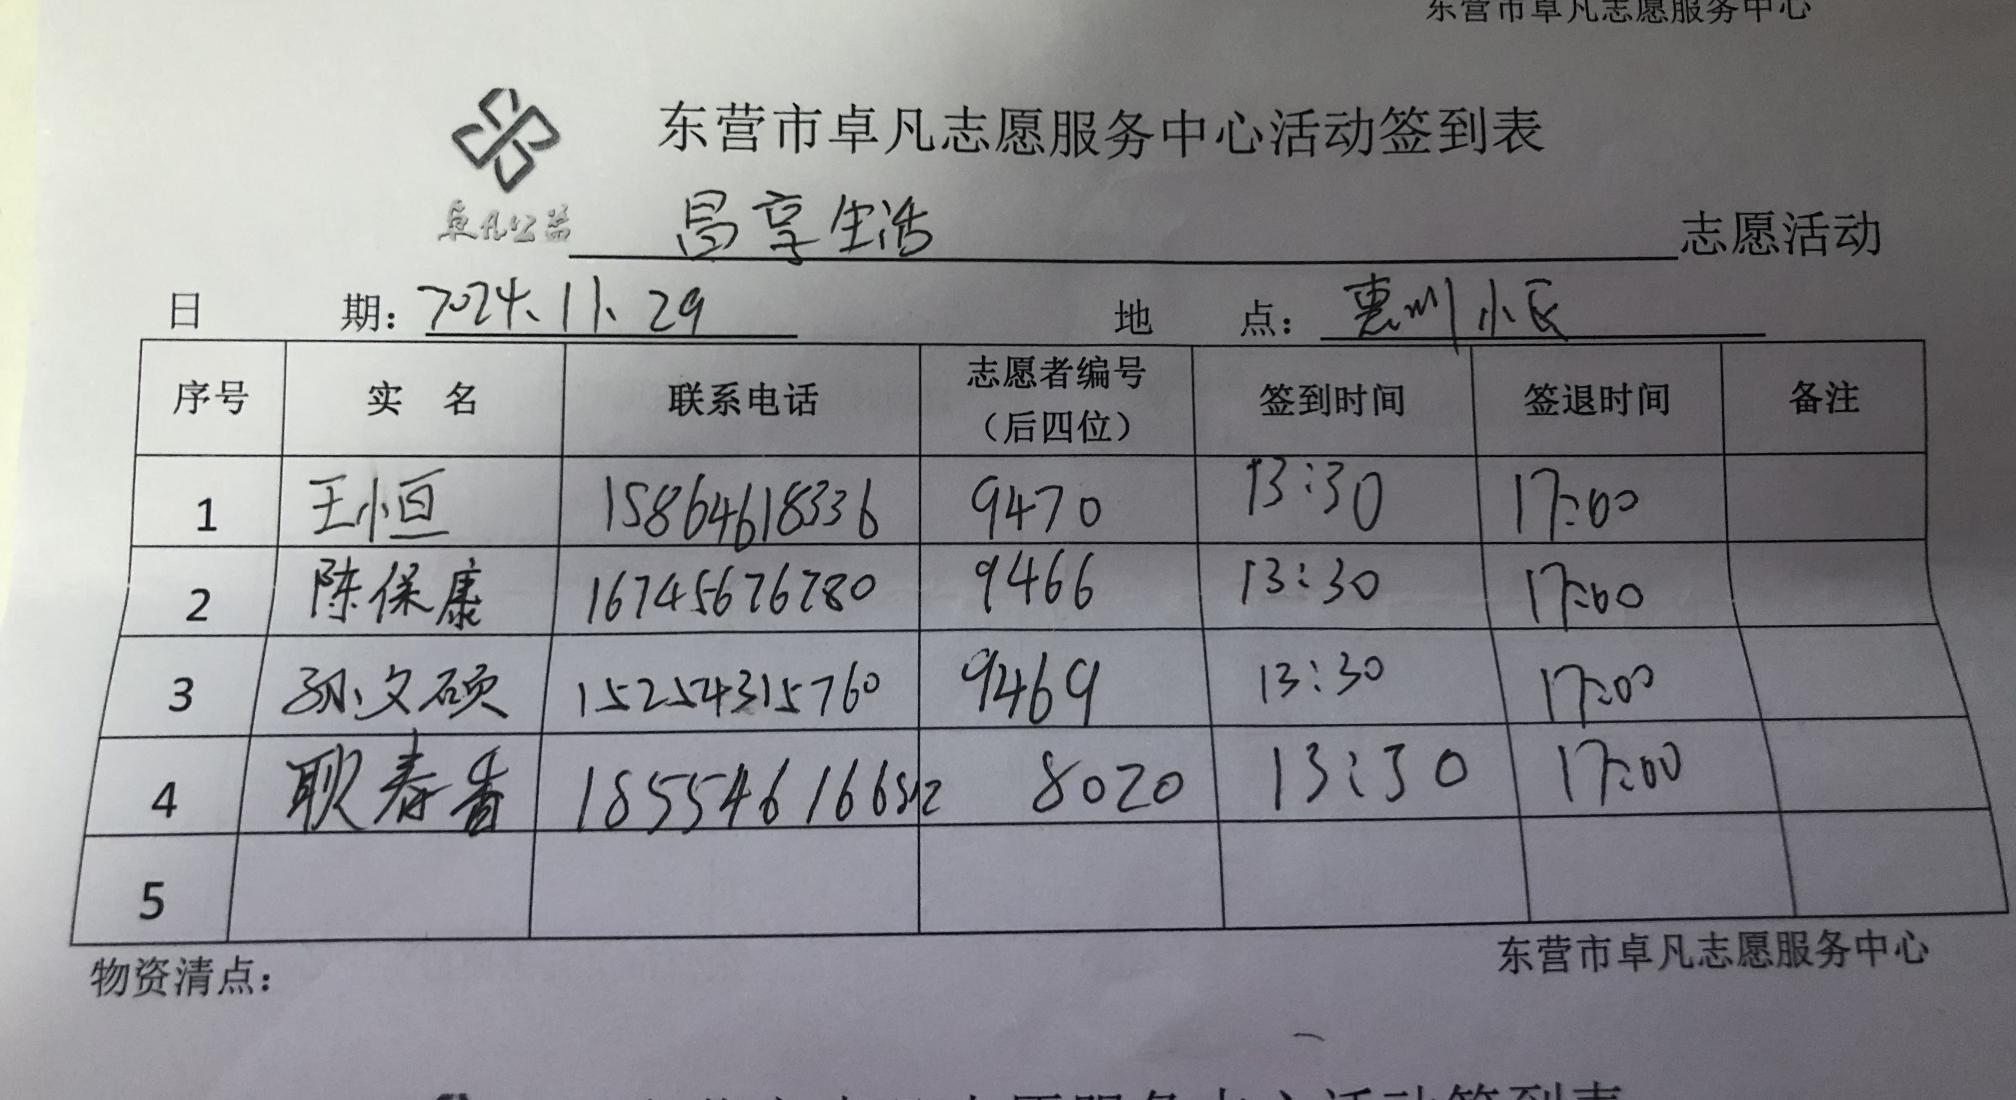 东营市卓凡志愿服务中心
东营市卓凡志愿服务中心活动签到表
卓凡公益 昌享生活 志愿活动
日 期: 2024.11.29 地 点: 惠州小区
序号 实 名 联系电话 志愿者编号（后四位） 签到时间 签退时间 备注
1 王小恒 15864618336 9470 13:30 17:00
2 陈保康 16745676780 9466 13:30 17:00
3 孙文硕 15254315760 9469 13:30 17:00
4 耿春香 8020 13:30 17:00
5
物资清点: 东营市卓凡志愿服务中心